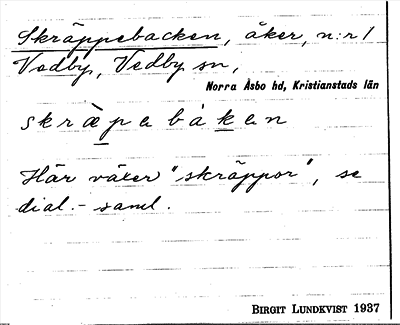 Skräppebacken, åker, n:r 1
Vedby, Vedby sn,
Norra Åsbo hd, Kristianstads län
skræpebakən
Här växer "skräppor", se
dial.- saml.
BIRGIT LUNDKVIST 1937